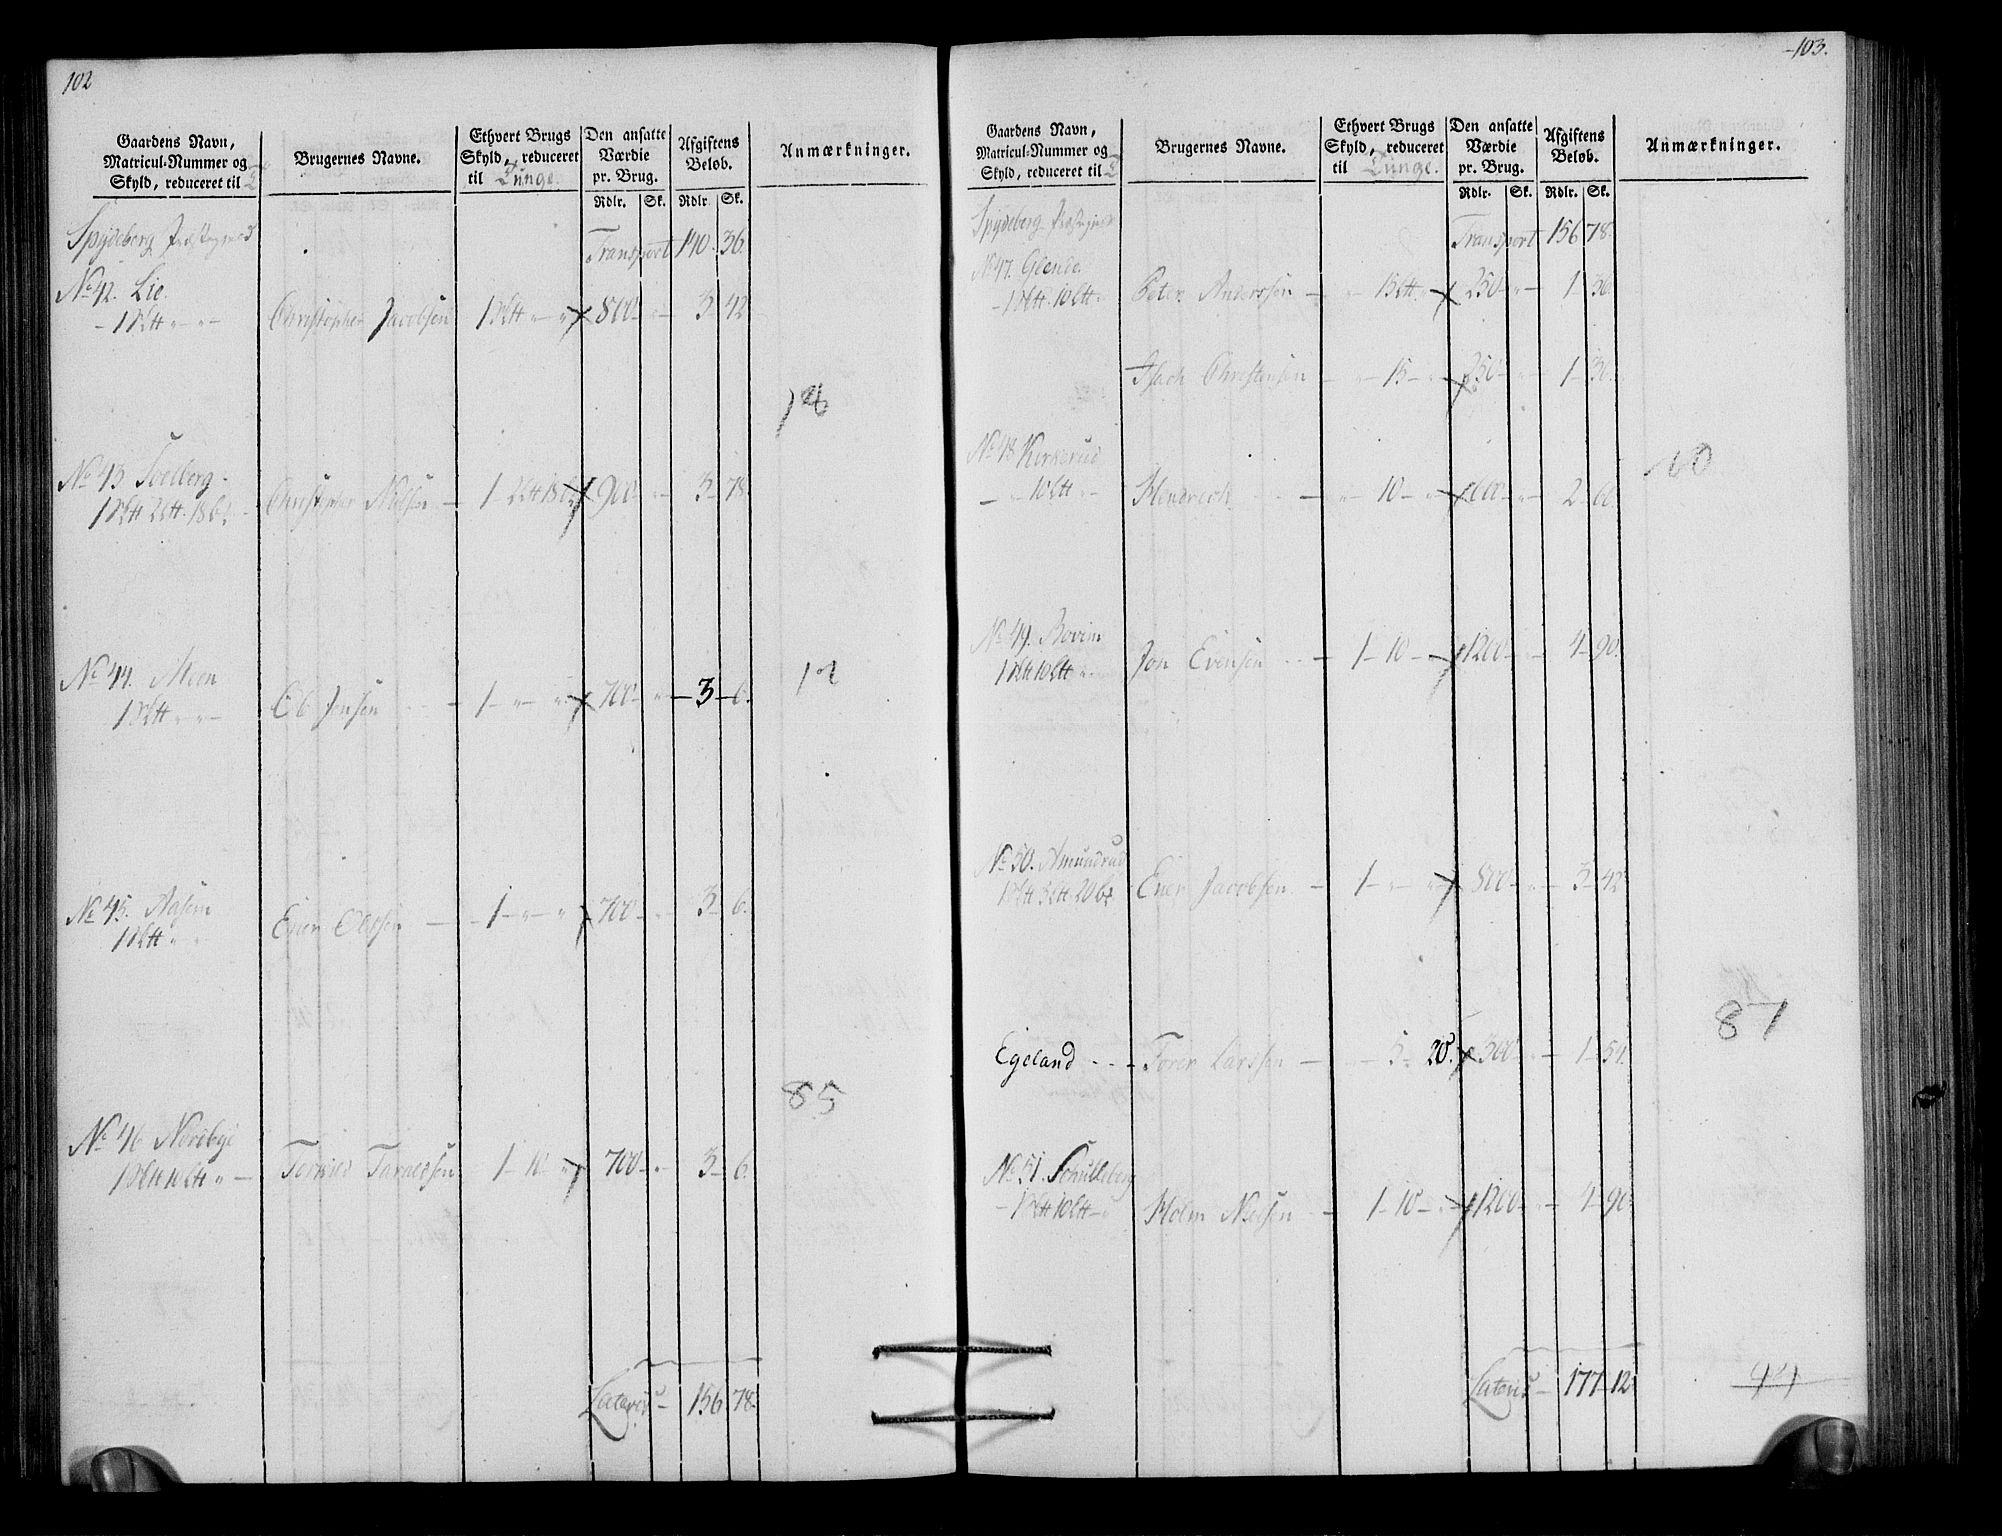 102
Gaardens Navn, Matricul-Nummer og Skyld, reduceret til
Brugernes Navne.
Ethvert Brugs Skyld, reduceret til Tunge.
Den ansatte Værdie pr. Brug.
Afgiftens Beløb.
Anmærkninger.
Rdlr. Sk. Rdlr. Sk.
Spydeberg Præstegield
Transport 140. 36.
No 42. Lie.
- 1 S℔ " " Christopher Jacobsen 1 S℔ - " 800 - " - 3 - 42
18
No 43 Soelberg.
1 S℔ 2 ℔. 18 b. Christopher Nilsen - 1 - 2 ℔ 18 b. 900 - " - 3 - 78.
No 44. Moen
1 S℔ " " - Ole Jensen - 1 - " - " 700 - " - 3 - 6.
12
No 45. Aasem
1 S℔ " " Ener Olssen - 1 - " - " 700 - " - 3 - 6.
85
No 46 Nordbye
1 S℔ 10 ℔ " - 1 - 10 - " 700 - " - 3 - 6.
Lateris - 156 78.
-103.
Gaardens Navn, Matricul-Nummer og Skyld, reduceret til
Brugernes Navne.
Ethvert Brugs Skyld, reduceret til Tunge.
Den ansatte Værdie pr. Brug.
Afgiftens Beløb.
Anmærkninger.
Rdlr. Sk. Rdlr. Sk.
Spydeberg
Transport 156 78.
No 47. Glende
- 1 S℔. 10 ℔ - Peter Anderssen - " 15 ℔ - " 250 - " - 1 - 30
Isach Christensen - " 15 - " 250 - " - 1 - 30.
No 48 Kirkerud
- " 10 ℔ " - Hendrich - " - 10 - " 600 - " - 2 - 60.
60
No 49. Bovim
1 S℔ 10 ℔ " Jon Evensen - 1 - 10 - 1200 - " - 4 - 90.
No 50. Amundrud
1 S℔ 5 ℔ - 20 b. Ener Jacobsen - 1 - " - " 800 - " - 3 - 42
87
Egeland - - - Torer Larssen - 5 - 20. 300 - " - 1 - 54.
No 51. Schulleberg
- 1 S℔ 10 ℔ - Holm Nielsen - 1 - 10 - 1200 - " - 4 - 90.
Lateris - 177 - 12